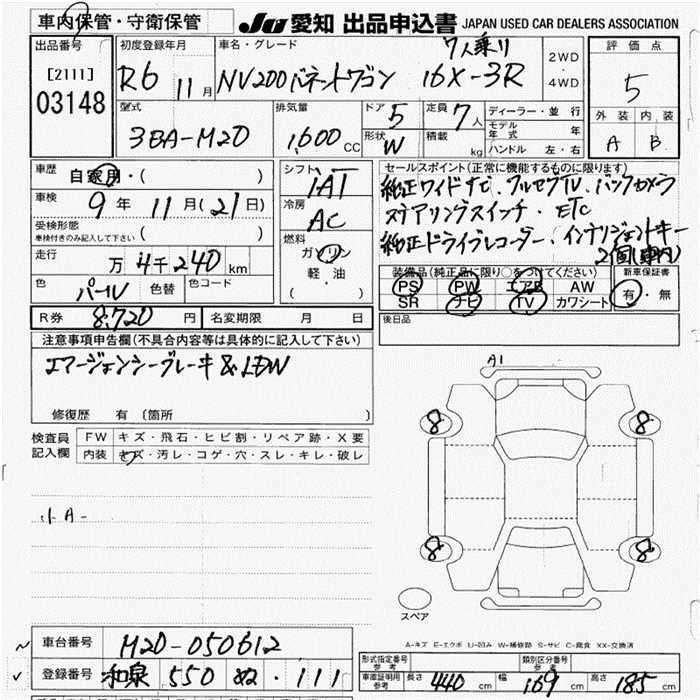 車内保管・守衛保管
JU 愛知 出品申込書 JAPAN USED CAR DEALERS ASSOCIATION
出品番号
[2111]
03148
初度登録年月
R6 11月
車名・グレード
7人乗り
NV200バネットワゴン 16X-3R
2WD
・
4WD
評価点
5
外装 内装
A B
型式
3BA-M20
排気量
1,600 CC
ドア 5
形状 W
定員 7人
積載 kg
ディーラー・並行
モデル年式 年
ハンドル 左・右
車歴
自家用・( )
車検
9年 11月(21日)
受検形態
車検付きのみ記入して下さい ( )
走行
万4千240km
色 パール 色替 色コード
シフト
IAT
冷房
AC
燃料
ガソリン
軽・油
( )
セールスポイント(正常に機能するものに限ります)
純正ワイドナビ、フルセグTV、バックカメラ
ステアリングスイッチ・ETC
純正ドライブレコーダー、インテリジェントキー
2個(車内)
装備品(純正品に限り○をつけてください)
PS PW エアB AW
SR ナビ TV カワシート
新車保証書
有・無
R券 8,720 円 名変期限 月 日
後日品
注意事項申告欄(不具合内容等は具体的に記入して下さい)
エマージェンシーブレーキ&LDW
修復歴 有〔箇所 〕
検査員記入欄
FW キズ・飛石・ヒビ割・リペア跡・X要
内装 キズ・汚レ・コゲ・穴・スレ・キレ・破レ
小A-
A1
8 8
8 8
スペア
A-キズ E-エクボ U-凹み W-補修跡 S-サビ C-腐食 XX-交換済
車台番号 M20-050612
登録番号 和泉 550 ぬ・111
形式指定番号参考
類別区分番号参考
車庫証明用参考 長さ 440 cm 幅 169 cm 高さ 185 cm